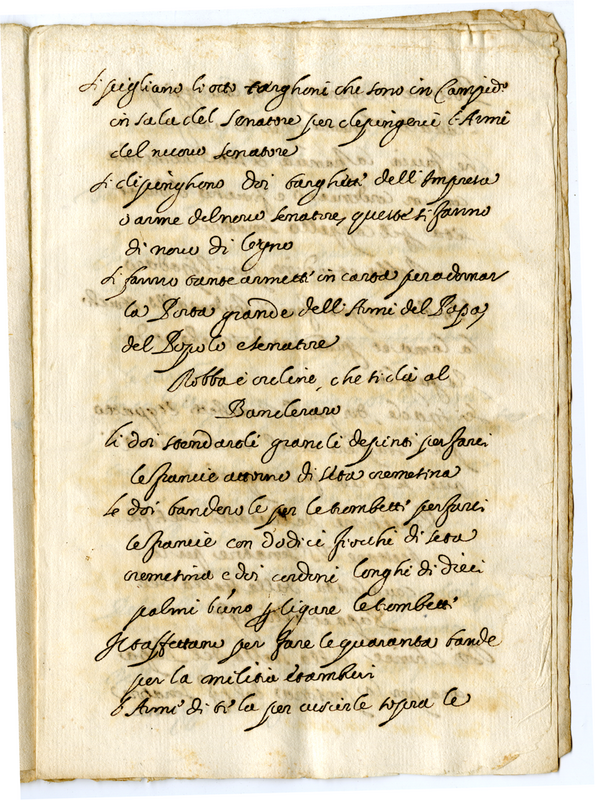 Si pigliano li otto targhoni che sono in Campid.o
in sala del Senatore per depingerci l'Armi
del nuovo Senatore
Si depinghono doi targhitti dell'Impresa
o arme del novo Senatore, queste si fanno
di novo di legno
Si fanno tante armetti in carta per adornar
la Porta grande dell'Armi del Papa,
del Popolo e Senatore
Robba è ordine, che si dà al
Banderaro
li doi stendardi grandi depinti per farci
le francie attorno di seta cremesina
Le doi banderole per le trombetti per farci
le francie con dodici fiocchi di seta
cremesina e doi cordoni longhi di dieci
palmi l'uno p ligare le trombetti
Il taffettano per fare le quaranta bande
per la militia e tamburi
l'Armi di tela per cuscirle sopra le